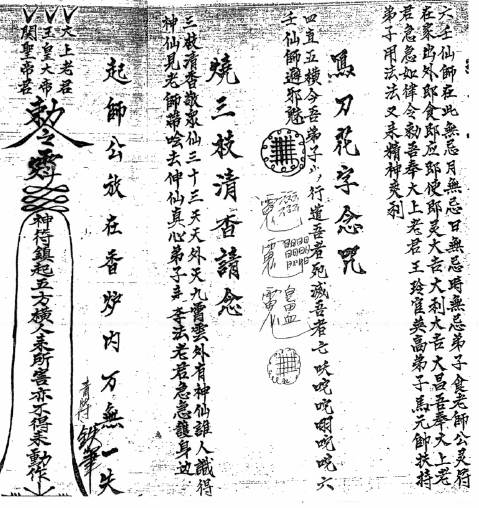 六壬仙師在此無忌月無忌日無忌時無忌弟子食老師公灵符
在家出外即食即应即使即灵大吉大利大吉大昌吾奉大上老
君急急如律令勅吾奉大上老君王玲官英高弟子馬元帥扶持
弟子用法法又来精神爽利
馬刀花字念咒
四直五横今吾弟子八行道吾者死滅吾者亡吠咤咤唎咤咤六
壬仙師避邪魁
燒三枝清香請念
三枝清香敬衆仙三十三天天外天九霄雲外有神仙誰人識得
神仙見老師蹄唸去伸仙真心弟子来法老君急急護身边
起師公放在香炉内万無一失
大上老君
玉皇大帝
関聖帝君
勅令
神符鎮起五方横人来所害亦不得来動作